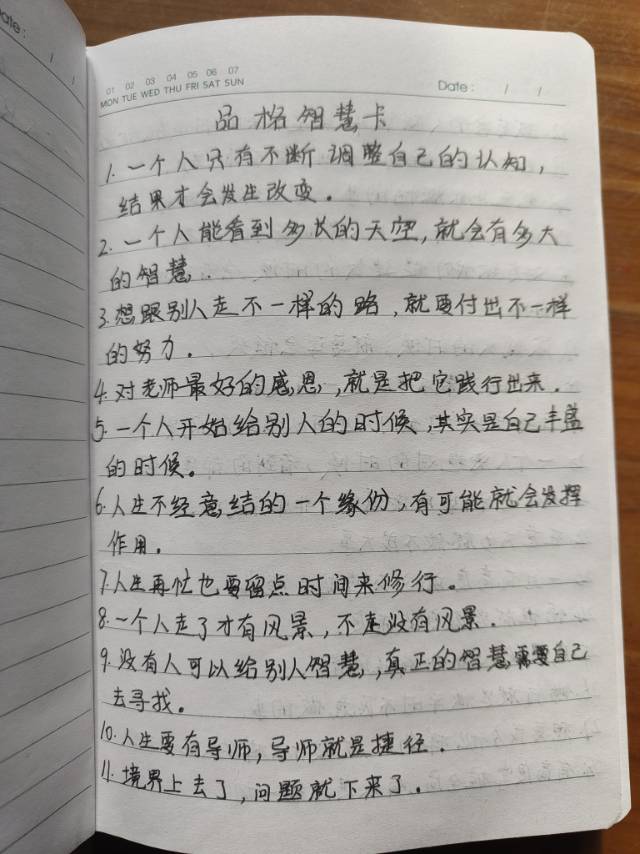 ate:    /    /
01 02 03 04 05 06 07
MON TUE WED THU FRI SAT SUN    Date:    /    /
品格智慧卡
1. 一个人只有不断调整自己的认知，
结果才会发生改变。
2. 一个人能看到多长的天空，就会有多大
的智慧
3. 想跟别人走不一样的路，就要付出不一样
的努力。
4. 对老师最好的感恩，就是把它践行出来．
5. 一个人开始给别人的时候，其实是自己丰盛
的时候。
6. 人生不经意结的一个缘份，有可能就会发挥
作用。
7. 人生再忙也要留点时间来修行。
8. 一个人走了才有风景，不走没有风景．
9. 没有人可以给别人智慧，真正的智慧需要自己
去寻找。
10. 人生要有导师，导师就是捷径．
11. 境界上去了，问题就下来了．